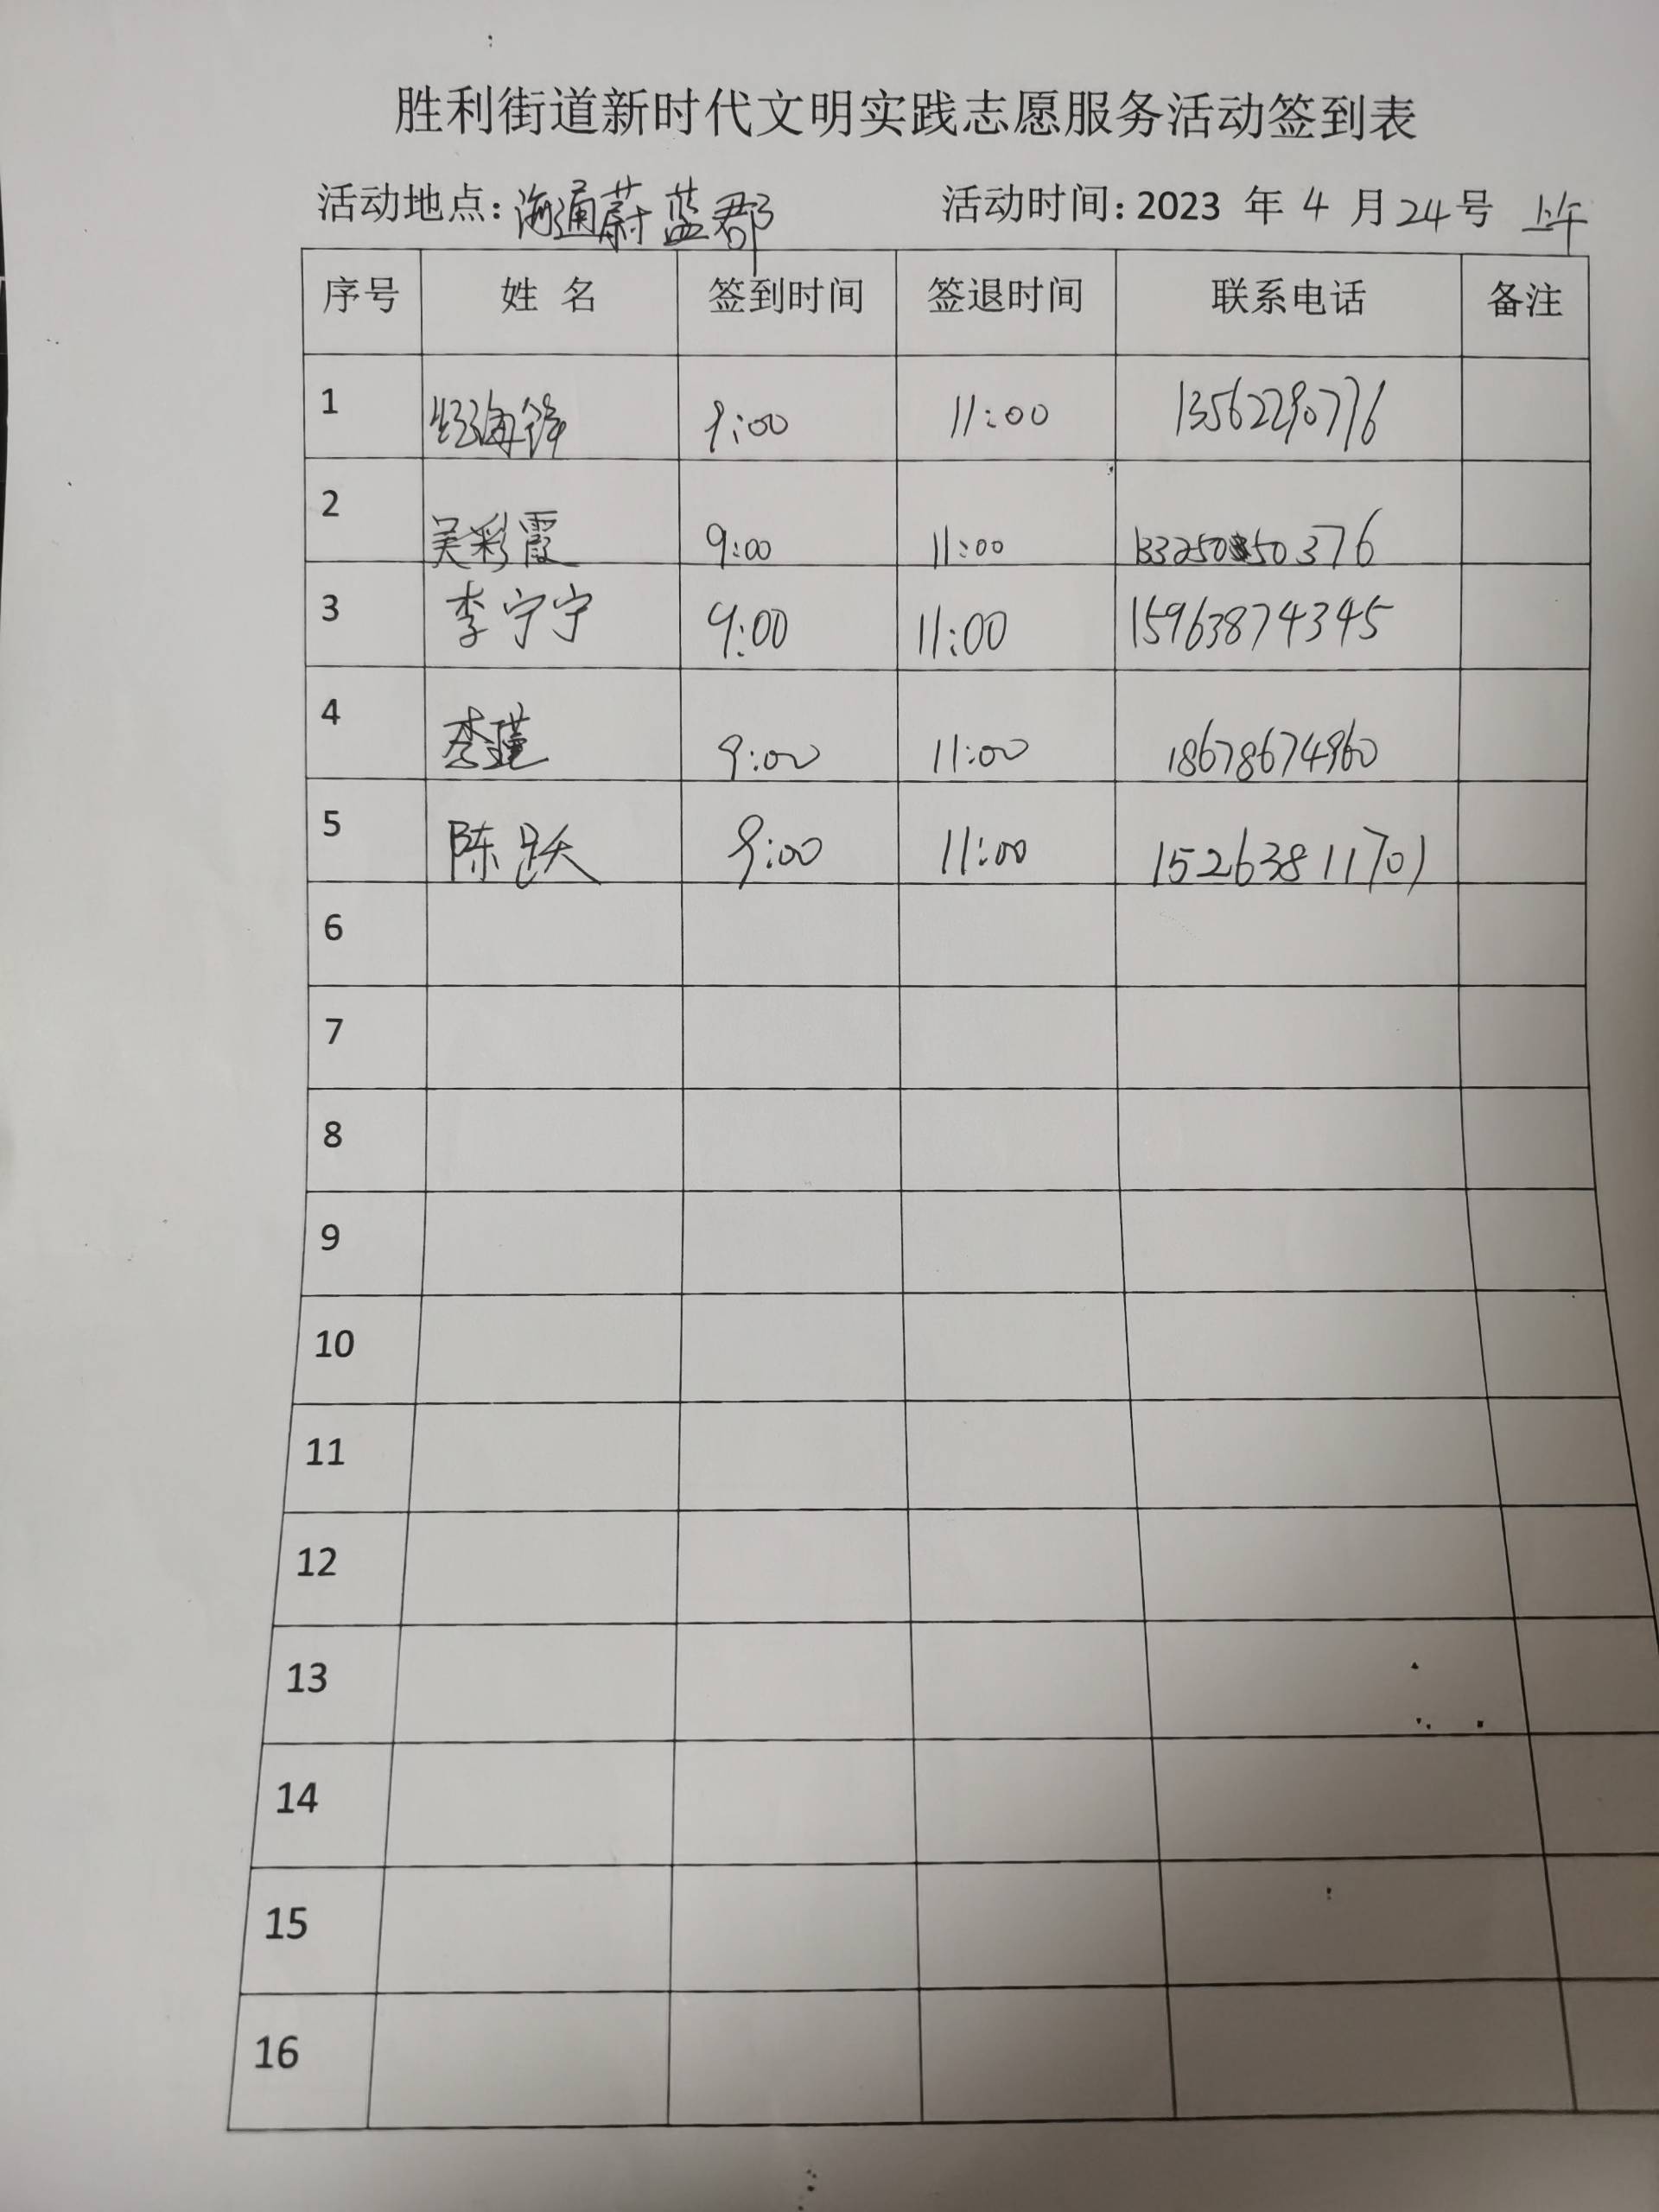 胜利街道新时代文明实践志愿服务活动签到表
活动地点：海通蔚蓝郡 活动时间：2023 年 4 月 24 号 上午
序号 姓 名 签到时间 签退时间 联系电话 备注
1 海锋 9:00 11:00 13562290776
2 吴彩霞 9:00 11:00 50376
3 李宁宁 9:00 11:00 15963874345
4 李瑾 9:00 11:00 18678674960
5 陈跃 9:00 11:00 15263811701
6
7
8
9
10
11
12
13
14
15
16